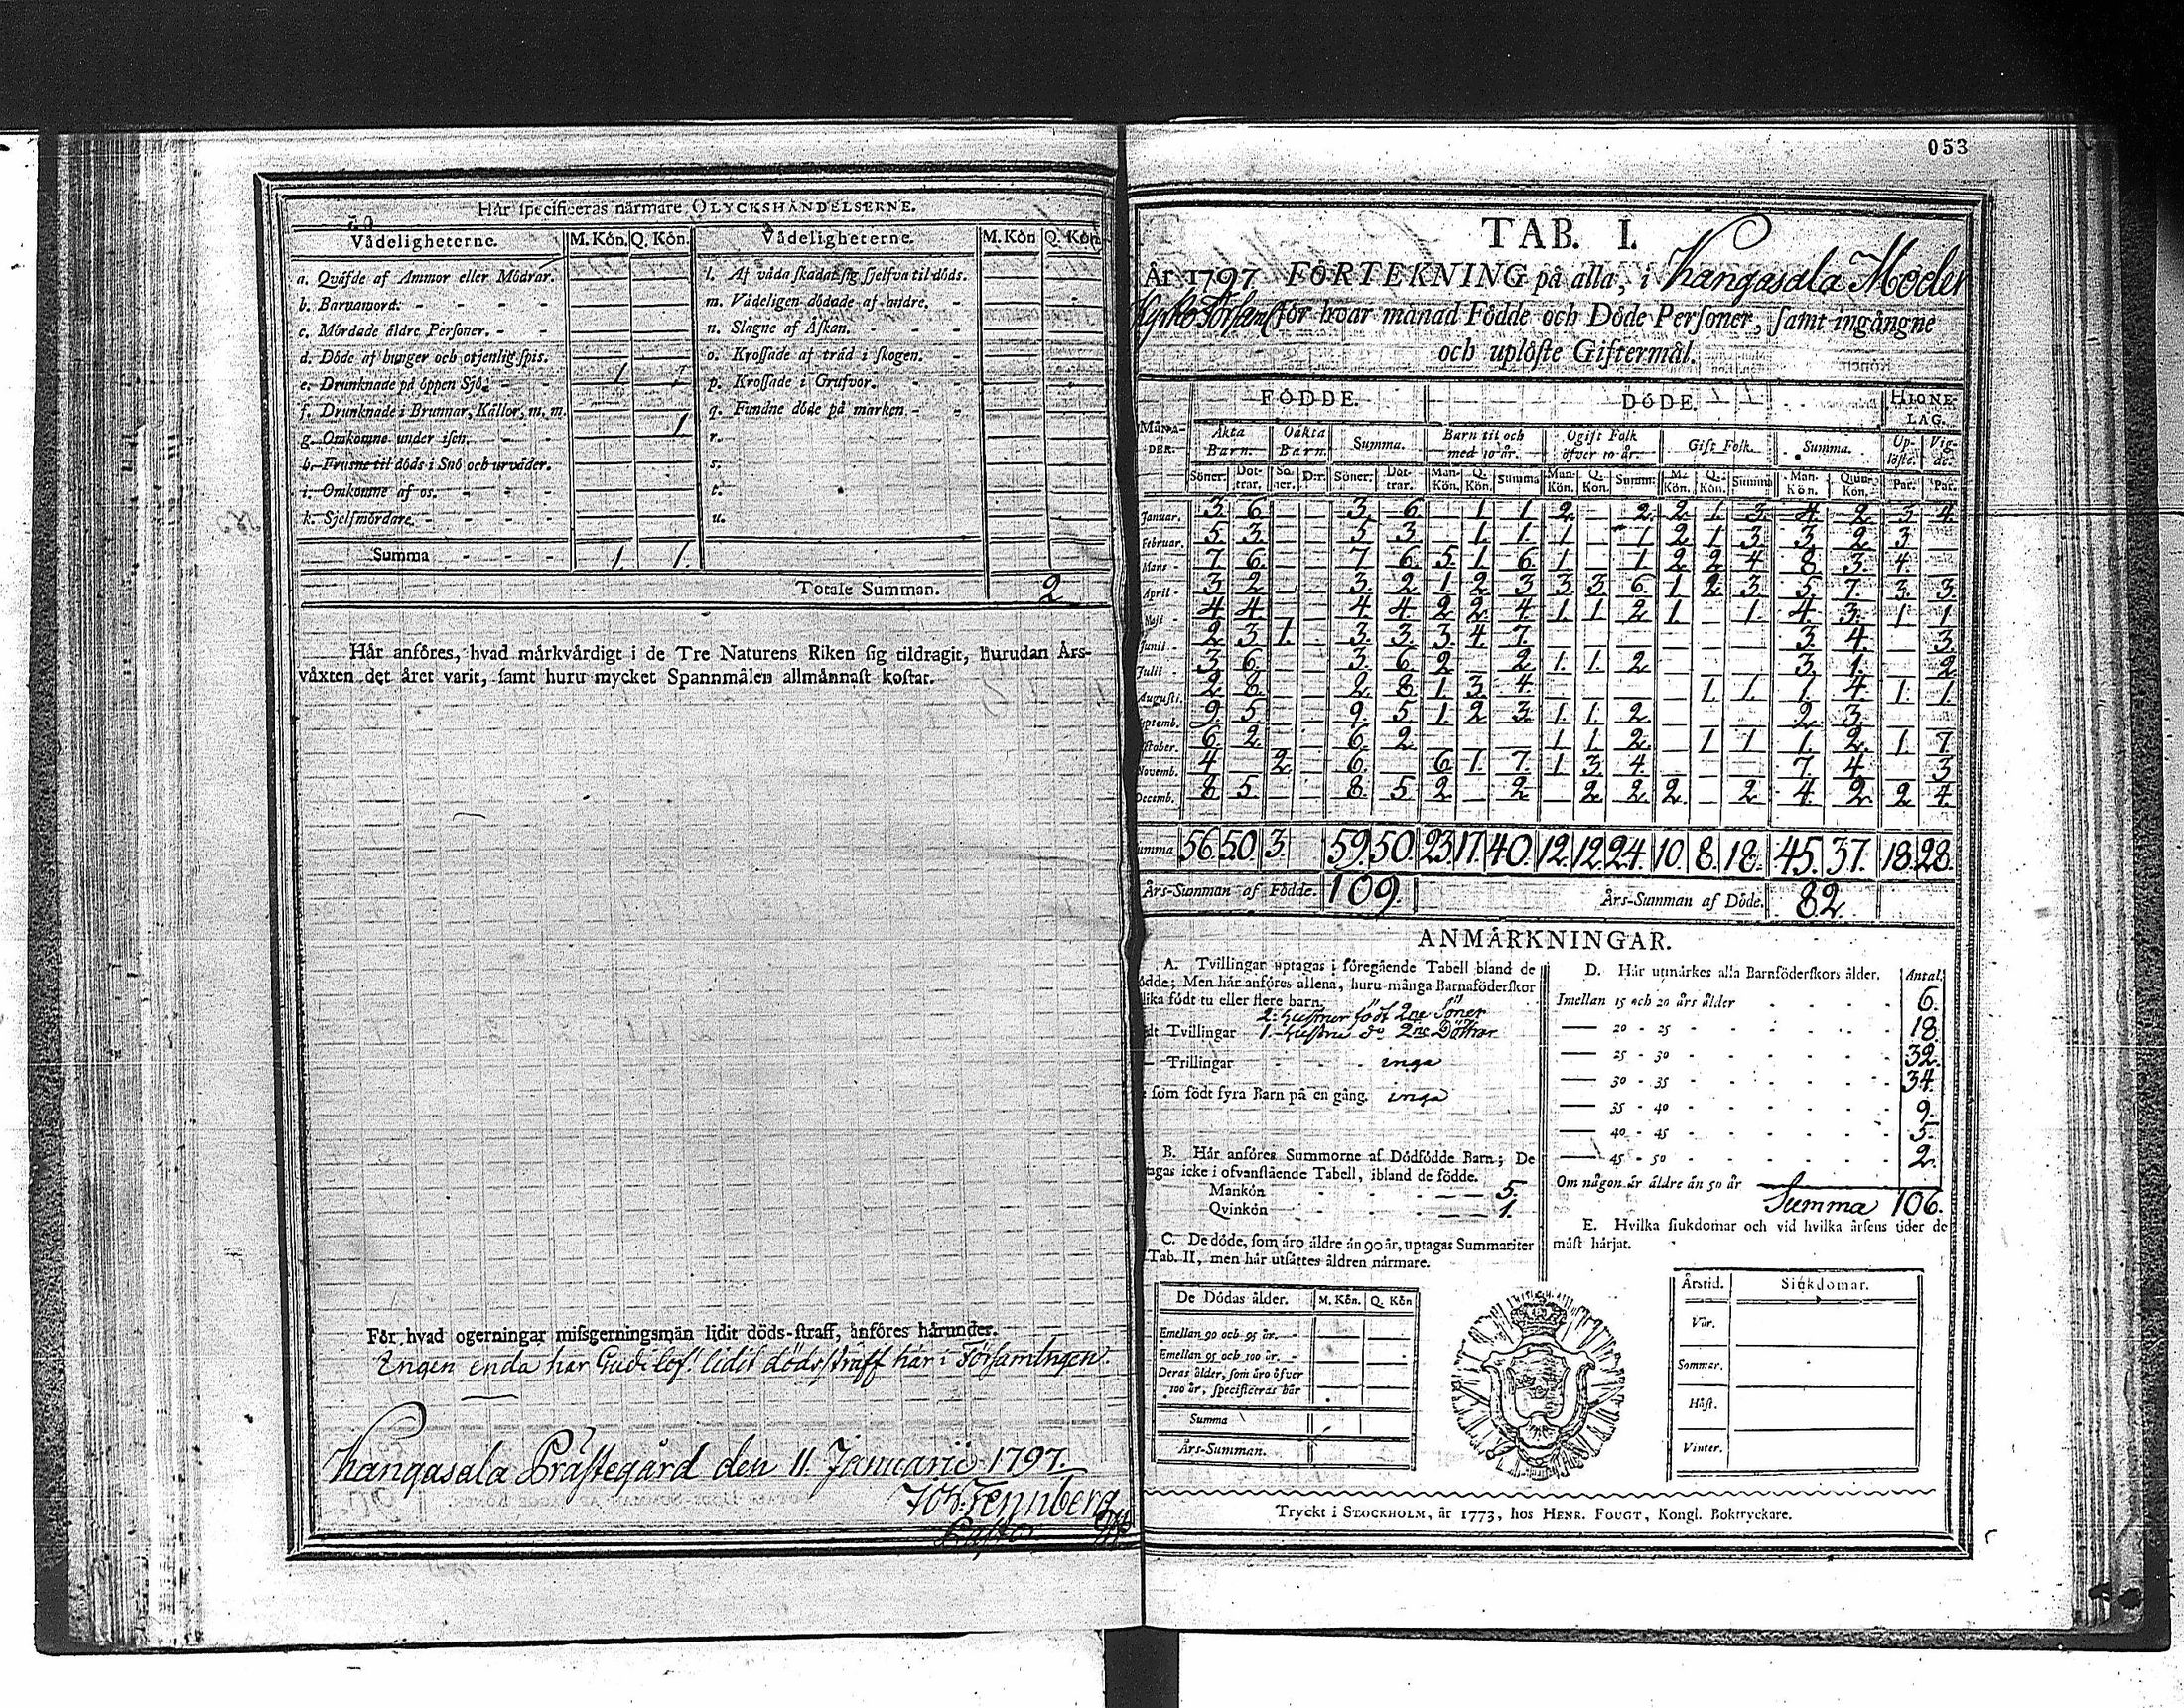 053
Hår specificeras nårmare OLYCKSHÅNDELSERNE.
Vådeligheterne. M. Kön. Q. Kön. Vådeligheterne. M. Kön Q. Kön
a. Qväfde af Ammor eller Mödrar. l. Af våda skadat sig sjelfva til döds.
b. Barnamord. m. Vådeligen dödade af andre.
c. Mördade äldre Personer. n. Slagne af Åskan.
d. Döde af hunger och otjenlig spis. o. Krossade af träd i skogen.
e. Drunknade på öppen Sjö. 1 p. Krossade i Grufvor.
f. Drunknade i Brunnar, Källor, m. m. q. Fundne döde på marken.
g. Omkomne under isen. 1 r.
h. Frusne til döds i Snö och urväder. s.
i. Omkomne af os. t.
k. Sjelfmördare. u.
Summa 1 1.
Totale Summan. 2
Hår anföres, hvad mårkvårdigt i de Tre Naturens Riken sig tildragit, hurudan Års-
våxten det året varit, samt huru mycket Spannmålen allmånnast kostat.
För hvad ogerningar missgerningsmän lidit döds-straff, anföres hårunder.
Engen enda har Gudi lof! lidit dödsstraff här i Församlingen.
Kangasala Prästegård den 11. Januarii 1797.
Pastor
TAB. I.
År 1797 FÖRTEKNING på alla, i Kangasala Moder
Kyrko Församl för hvar månad Födde och Döde Personer, samt ingångne
och uplöste Giftermål.
FÖDDE. DÖDE. HIONE-
LAG.
MÅNA-
DER. Äkta
Barn. Oäkta
Barn. Summa. Barn til och
med 10 år. Ogift Folk
öfver 10 år. Gift Folk. Summa. Up-
löste. Vig-
de.
Söner. Döt-
trar. Sö-
ner. D:r. Söner. Döt-
trar. Man-
Kön. Q.
Kön. Summa Man-
Kön. Q.
Kön. Summ. M.
Kön. Q.
Kön. Summa Man-
Kön. Quin-
Kön. Par. Par.
Januar. 3. 6. 3. 6. 1. 1. 2. 2. 2. 1. 3. 4. 2. 3. 4.
Februar. 5 3. 5 3. 1. 1. 1 1 2 1 3 3 2 3
Mars 7 6. 7 6. 5. 1 6 1 1. 2 2 4 8 3. 4.
April 3 2 3 2 1. 2 3 3 3 6 1 2 3 5. 7. 3. 3
Maji 4 4. 4 4. 2 2. 4. 1. 1 2 1. 1. 4 3. 1. 1
Junii 2 3 1. 3. 3. 3 4 7. 3. 4. 3.
Julii 3 6. 3 6 2 2 1. 1. 2 3 1. 2
Augusti. 2 8. 2 8 1 3 4. 1. 1. 1. 4 1. 1.
Septemb. 9 5 9. 5 1. 2 3 1. 1. 2 2 3.
October. 6. 2 6. 2 1 1. 2. 1 1 1. 2. 1. 7
Novemb. 4 2. 6. 6. 1. 7. 1. 3. 4. 7. 4 3
Decemb. 8 5. 8. 5 2 2 2 2 2. 2. 4. 2 2 4.
Summa 56. 50. 3. 59. 50. 23. 17. 40. 12. 12. 24. 10. 8. 18. 45. 37. 18. 28.
Års-Summan af Födde. 109. Års-Summan af Döde. 82.
ANMÄRKNINGAR.
A. Tvillingar uptagas i föregående Tabell bland de
ödde; Men här anföres allena, huru många Barnaföderskor
lika födt tu eller flere barn.
2. Hustrur född 2ne Söner
dt Tvillingar 1. Hustru do 2ne Döttrar
Trillingar inga
som födt fyra Barn på en gång. inga
B. Hår anföres Summorne af Dödfödde Barn; De
tagas icke i ofvanstående Tabell, ibland de födde.
Mankön 5.
Qvinkön 1.
C. De döde, som äro äldre än 90 år, uptagas Summariter
Tab. II, men här utsättes åldren närmare.
De Dödas ålder. M. Kön. Q. Kön
Emellan 90 och 95 år.
Emellan 95 och 100 år.
Deras ålder, som äro öfver
100 år, specificeras här
Summa
Års-Summan.
D. Hår utmärkes alla Barnföderskors ålder. Antal
Imellan 15 och 20 års ålder 6.
20 - 25 18.
25 - 30 32.
30 - 35 34.
35 - 40 9.
40 - 45 5.
45 - 50 2.
Om någon är äldre än 50 år
Summa 106.
E. Hvilka siukdomar och vid hvilka årsens tider de
mäst härjat.
Årstid. Siukdomar.
Vår.
Sommar.
Höst.
Vinter.
Tryckt i STOCKHOLM, år 1773, hos HENR. FOUGT, Kongl. Boktryckare.